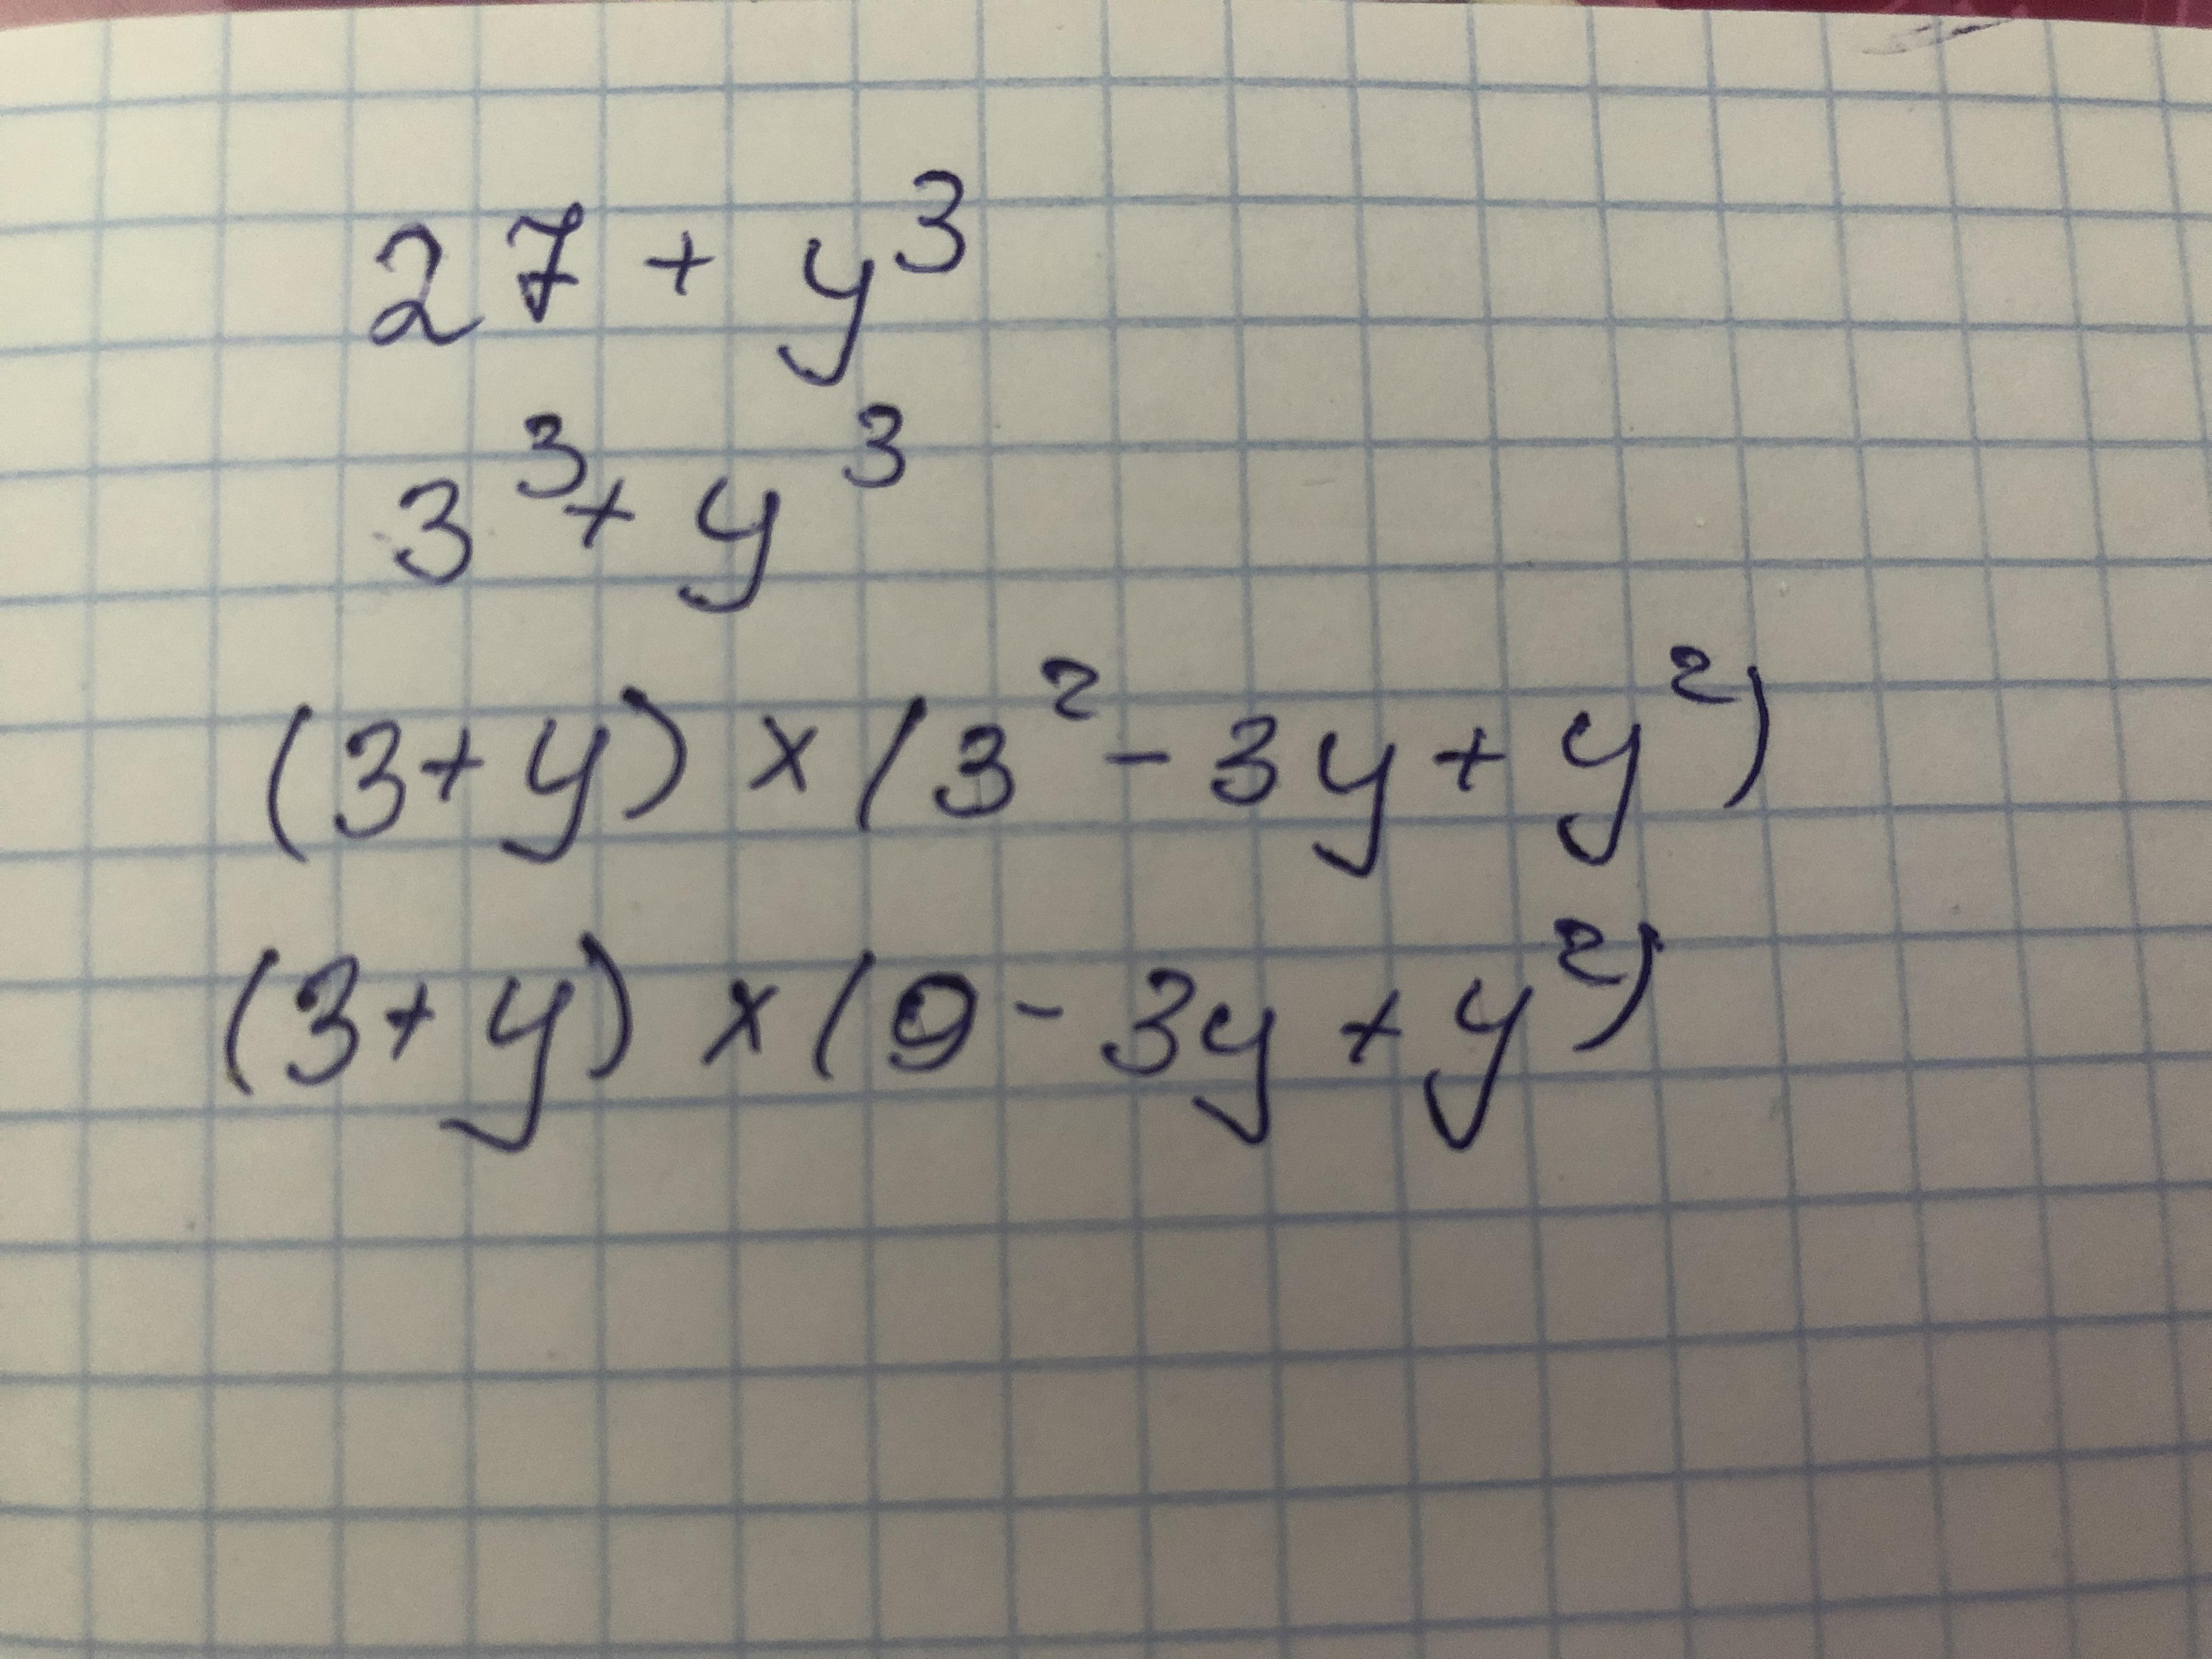 27 + y³
3³ + y³
(3+y) × (3² - 3y + y²)
(3+y) × (9 - 3y + y²)